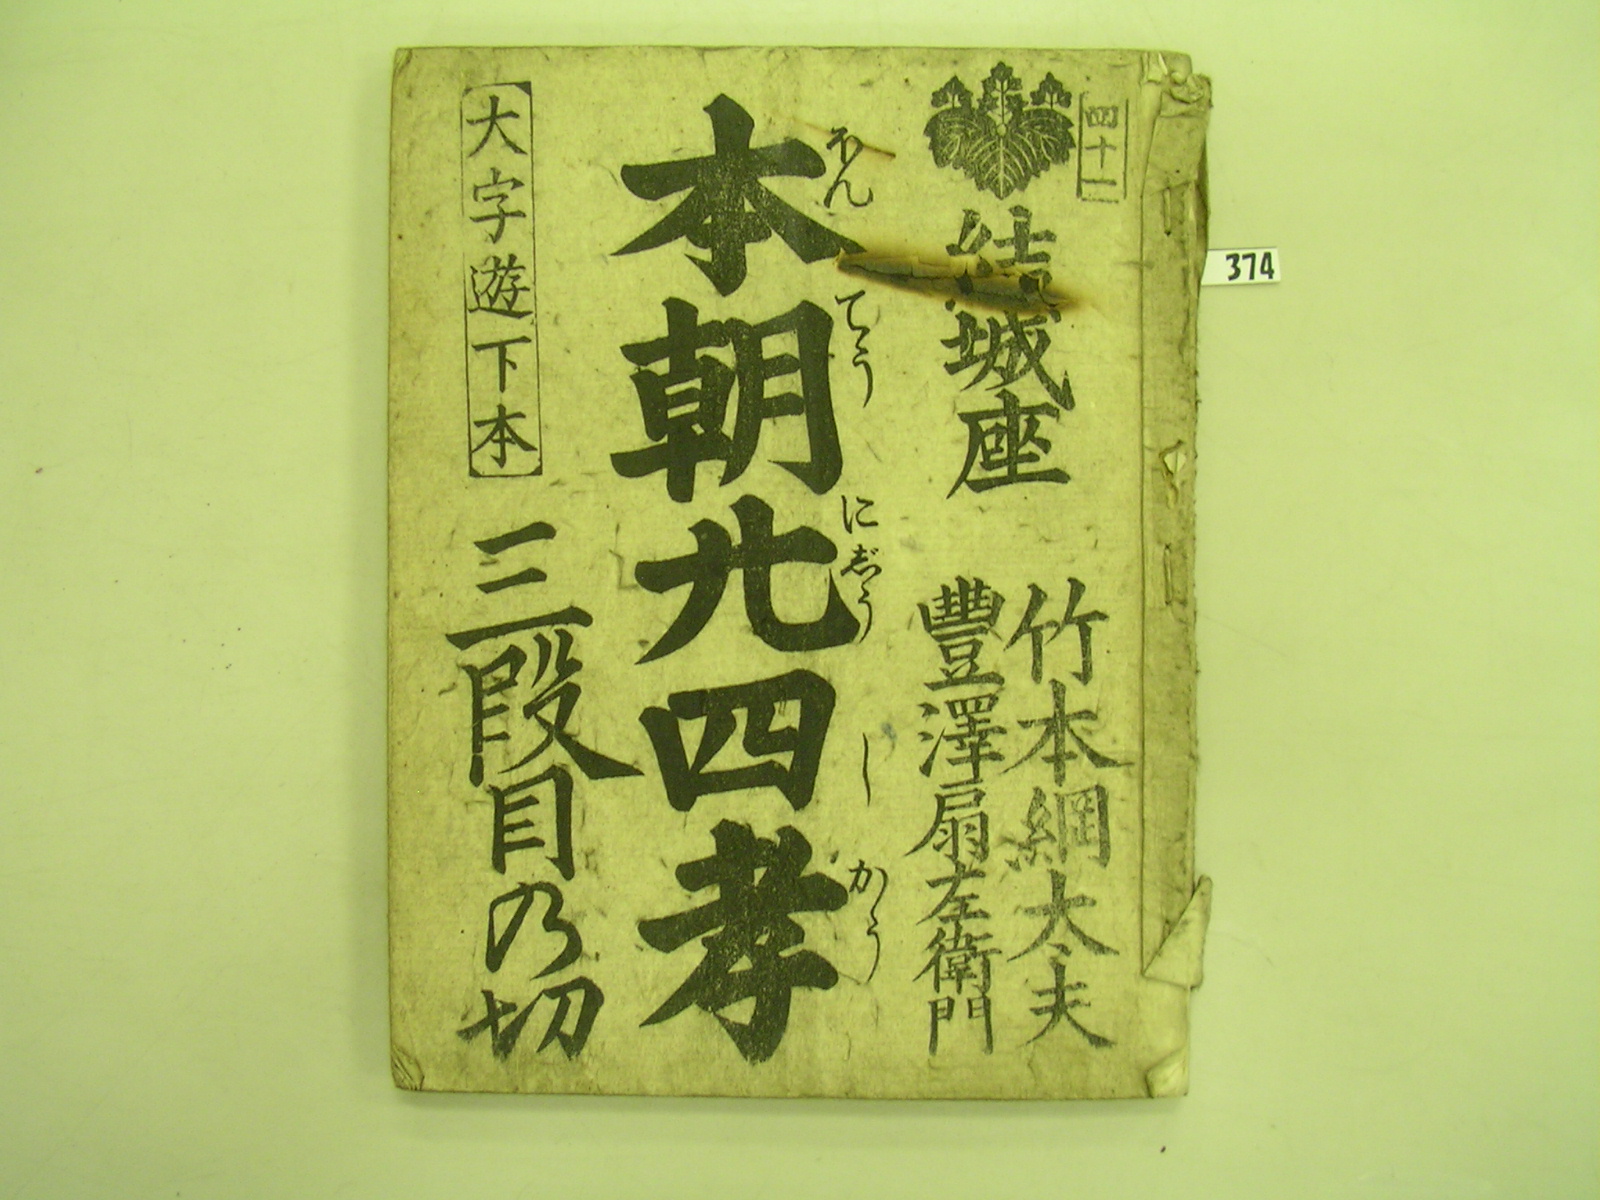 四十二
結城座
竹本綱太夫
豊澤扇左衛門
ほんてうにぢうしかう
本朝廿四孝
大字遊下本
三段目の切
374